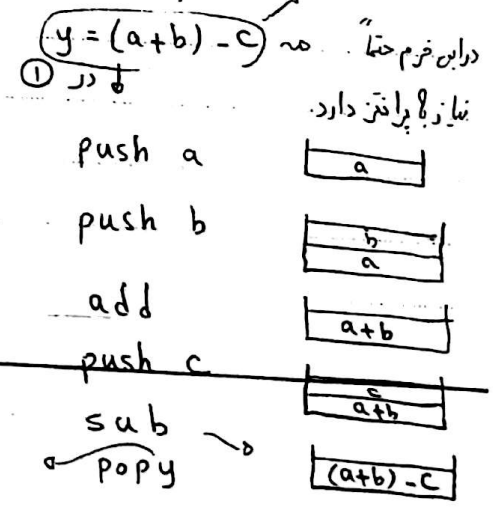 y = (a+b) - c دراین فرم حتماً
① در نیاز به پرانتز دارد.
push a a
push b b
a
add a+b
push c c
a+b
sub
pop y (a+b) - c